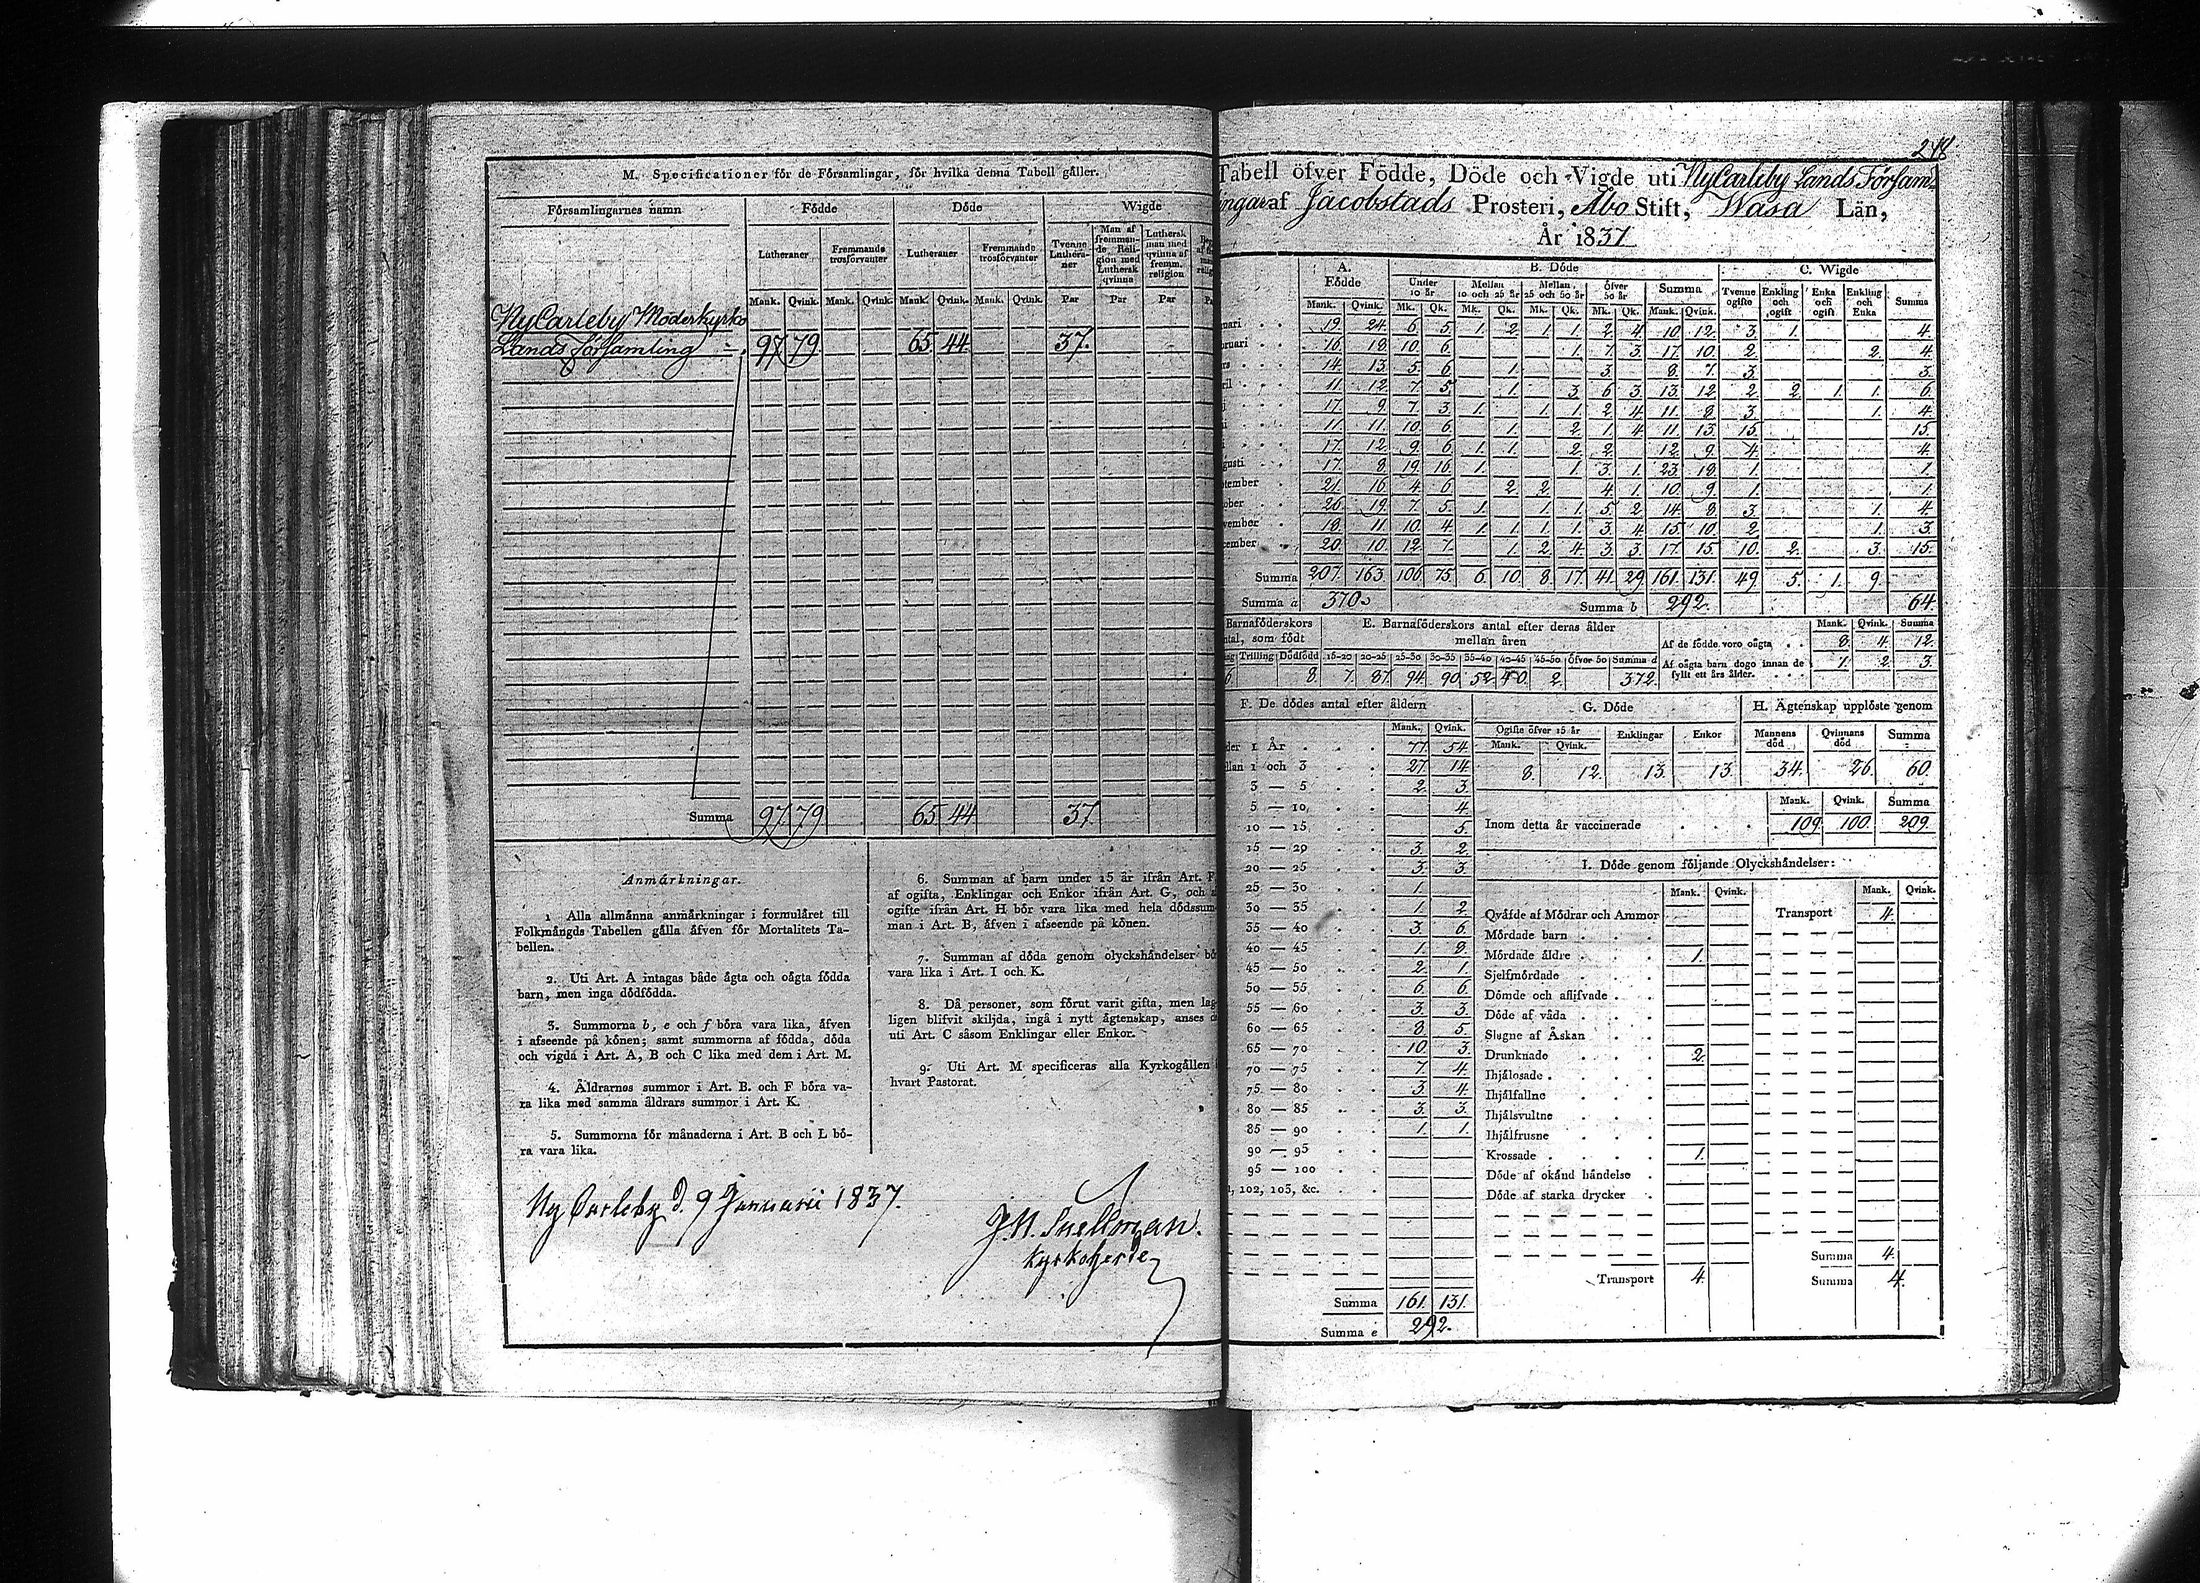 M. Specificationer för de Församlingar, för hvilka denna Tabell gäller.
Församlingarnes namn Födde Döde Wigde
Lutheraner Fremmande trosförvanter Lutheraner Fremmande trosförvanter Tvenne Lutheraner Man af fremmande Religion med Luthersk qvinna Luthersk man med qvinna af fremm. religion
Mank. Qvink. Mank. Qvink. Mank. Qvink. Mank. Qvink. Par Par Par
NyCarleby Moderkyrko
Lands församling 97 79 65 44 37.
Summa 97 79 65 44 37
Anmärkningar.
1 Alla allmänna anmärkningar i formuläret till
Folkmängds Tabellen gälla äfven för Mortalitets Ta-
bellen.
2. Uti Art. A intagas både ägta och oägta födda
barn, men inga dödfödda.
3. Summorna b, e och f böra vara lika, äfven
i afseende på könen; samt summorna af födda, döda
och vigda i Art. A, B och C lika med dem i Art. M.
4. Äldrarnes summor i Art. B. och F böra va-
ra lika med samma äldrars summor i Art. K.
5. Summorna för månaderna i Art. B och L bö-
ra vara lika.
6. Summan af barn under 15 år ifrån Art. F
af ogifta, Enklingar och Enkor ifrån Art. G, och
ogifte ifrån Art. H bör vara lika med hela dödssum-
man i Art. B, äfven i afseende på könen.
7. Summan af döda genom olyckshändelser bö
vara lika i Art. I och K.
8. Då personer, som förut varit gifta, men lag-
ligen blifvit skiljda, ingå i nytt ägtenskap, anses
uti Art. C såsom Enklingar eller Enkor.
9. Uti Art. M specificeras alla Kyrkogällen
hvart Pastorat.
Ny Carleby d. 9 Januarii 1837.
J. N. Snellman.
Kyrkoherde
218
Tabell öfver Födde, Döde och Vigde uti NyCarleby Lands Försam-
lingar af Jacobstads Prosteri, Åbo Stift, Wasa Län,
År 1837
A. Födde B. Döde C. Wigde
Under 10 år Mellan 10 och 25 år Mellan 25 och 50 år Öfver 50 år Summa Tvenne ogifte Enkling och ogift Enka och ogift Enkling och Enka Summa
Mank. Qvink. Mk. Qk. Mk. Qk. Mk. Qk. Mk. Qk. Mank. Qvink.
nuari 19. 24. 6. 5. 1. 2. 1. 1. 2. 4. 10. 12. 3. 1. 4.
bruari 16. 18. 10. 6. 1. 7. 3. 17. 10. 2. 2. 4.
rs 14. 13. 5. 6. 1. 3. 8. 7. 3. 3.
ril 11. 12. 7. 5. 1. 3. 6. 3. 13. 12. 2. 2. 1. 1. 6.
17. 9. 7. 3. 1. 1. 1. 2. 4. 11. 8. 3. 1. 4.
11. 11. 10. 6. 1. 2. 1. 4. 11. 13. 15. 15.
17. 12. 9. 6. 1. 1. 2. 2. 12. 9. 4. 4.
gusti 17. 8. 19. 16. 1. 1. 3. 1. 23. 18. 1. 1.
ptember 21. 16. 4. 6. 2. 2. 4. 1. 10. 9. 1. 1.
tober 26. 19. 7. 5. 1. 1. 1. 5. 2. 14. 8. 3. 1. 4.
vember 18. 11. 10. 4. 1. 1. 1. 1. 3. 4. 15. 10. 2. 1. 3.
cember 20. 10. 12. 7. 1. 2. 4. 3. 3. 17. 15. 10. 2. 3. 15.
Summa 207. 163. 106. 75. 6. 10. 8. 17. 41. 29. 161. 131. 49. 5. 1. 9.
Summa a 370 Summa b 292. 64.
Barnaföderskors
ntal, som födt
E. Barnaföderskors antal efter deras ålder
mellan åren
Trilling Dödfödd 15-20 20-25 25-30 30-35 35-40 40-45 45-50 Öfver 50 Summa d
6 8. 7. 87. 94. 90. 52. 40. 2. 372.
Mank. Qvink. Summa
Af de födde voro oägta 8. 4. 12.
Af oägta barn dogo innan de
fyllt ett års ålder. 1. 2. 3.
F. De dödes antal efter åldern
Mank. Qvink.
der 1 År 77. 54.
llan 1 och 3 27. 14.
3 — 5 2. 3.
5 — 10 4.
10 — 15 5.
15 — 20 3. 2.
20 — 25 3. 3.
25 — 30 1.
30 — 35 1. 2.
35 — 40 3. 6.
40 — 45 1. 8.
45 — 50 2. 1.
50 — 55 6. 6.
55 — 60 3. 3.
60 — 65 8. 5.
65 — 70 10. 3.
70 — 75 7. 4.
75 — 80 3. 4.
80 — 85 3. 3.
85 — 90 1. 1.
90 — 95
95 — 100
102, 103, &c.
Summa 161. 131.
Summa e 292.
G. Döde
Ogifte öfver 15 år Enklingar Enkor
Mank. Qvink.
8. 12. 13. 13.
H. Ägtenskap upplöste genom
Mannens död Qvinnans död Summa
34. 26. 60.
Mank. Qvink. Summa
Inom detta år vaccinerade 109. 100. 209.
I. Döde genom följande Olyckshändelser:
Mank. Qvink. Mank. Qvink.
Qväfde af Mödrar och Ammor Transport 4.
Mördade barn
Mördade äldre 1.
Sjelfmördade
Dömde och aflifvade
Döde af våda
Slagne af Åskan
Drunknade 2.
Ihjälosade
Ihjälfallne
Ihjälsvultne
Ihjälfrusne
Krossade 1.
Döde af okänd händelse
Döde af starka drycker
Summa 4.
Transport 4. Summa 4.